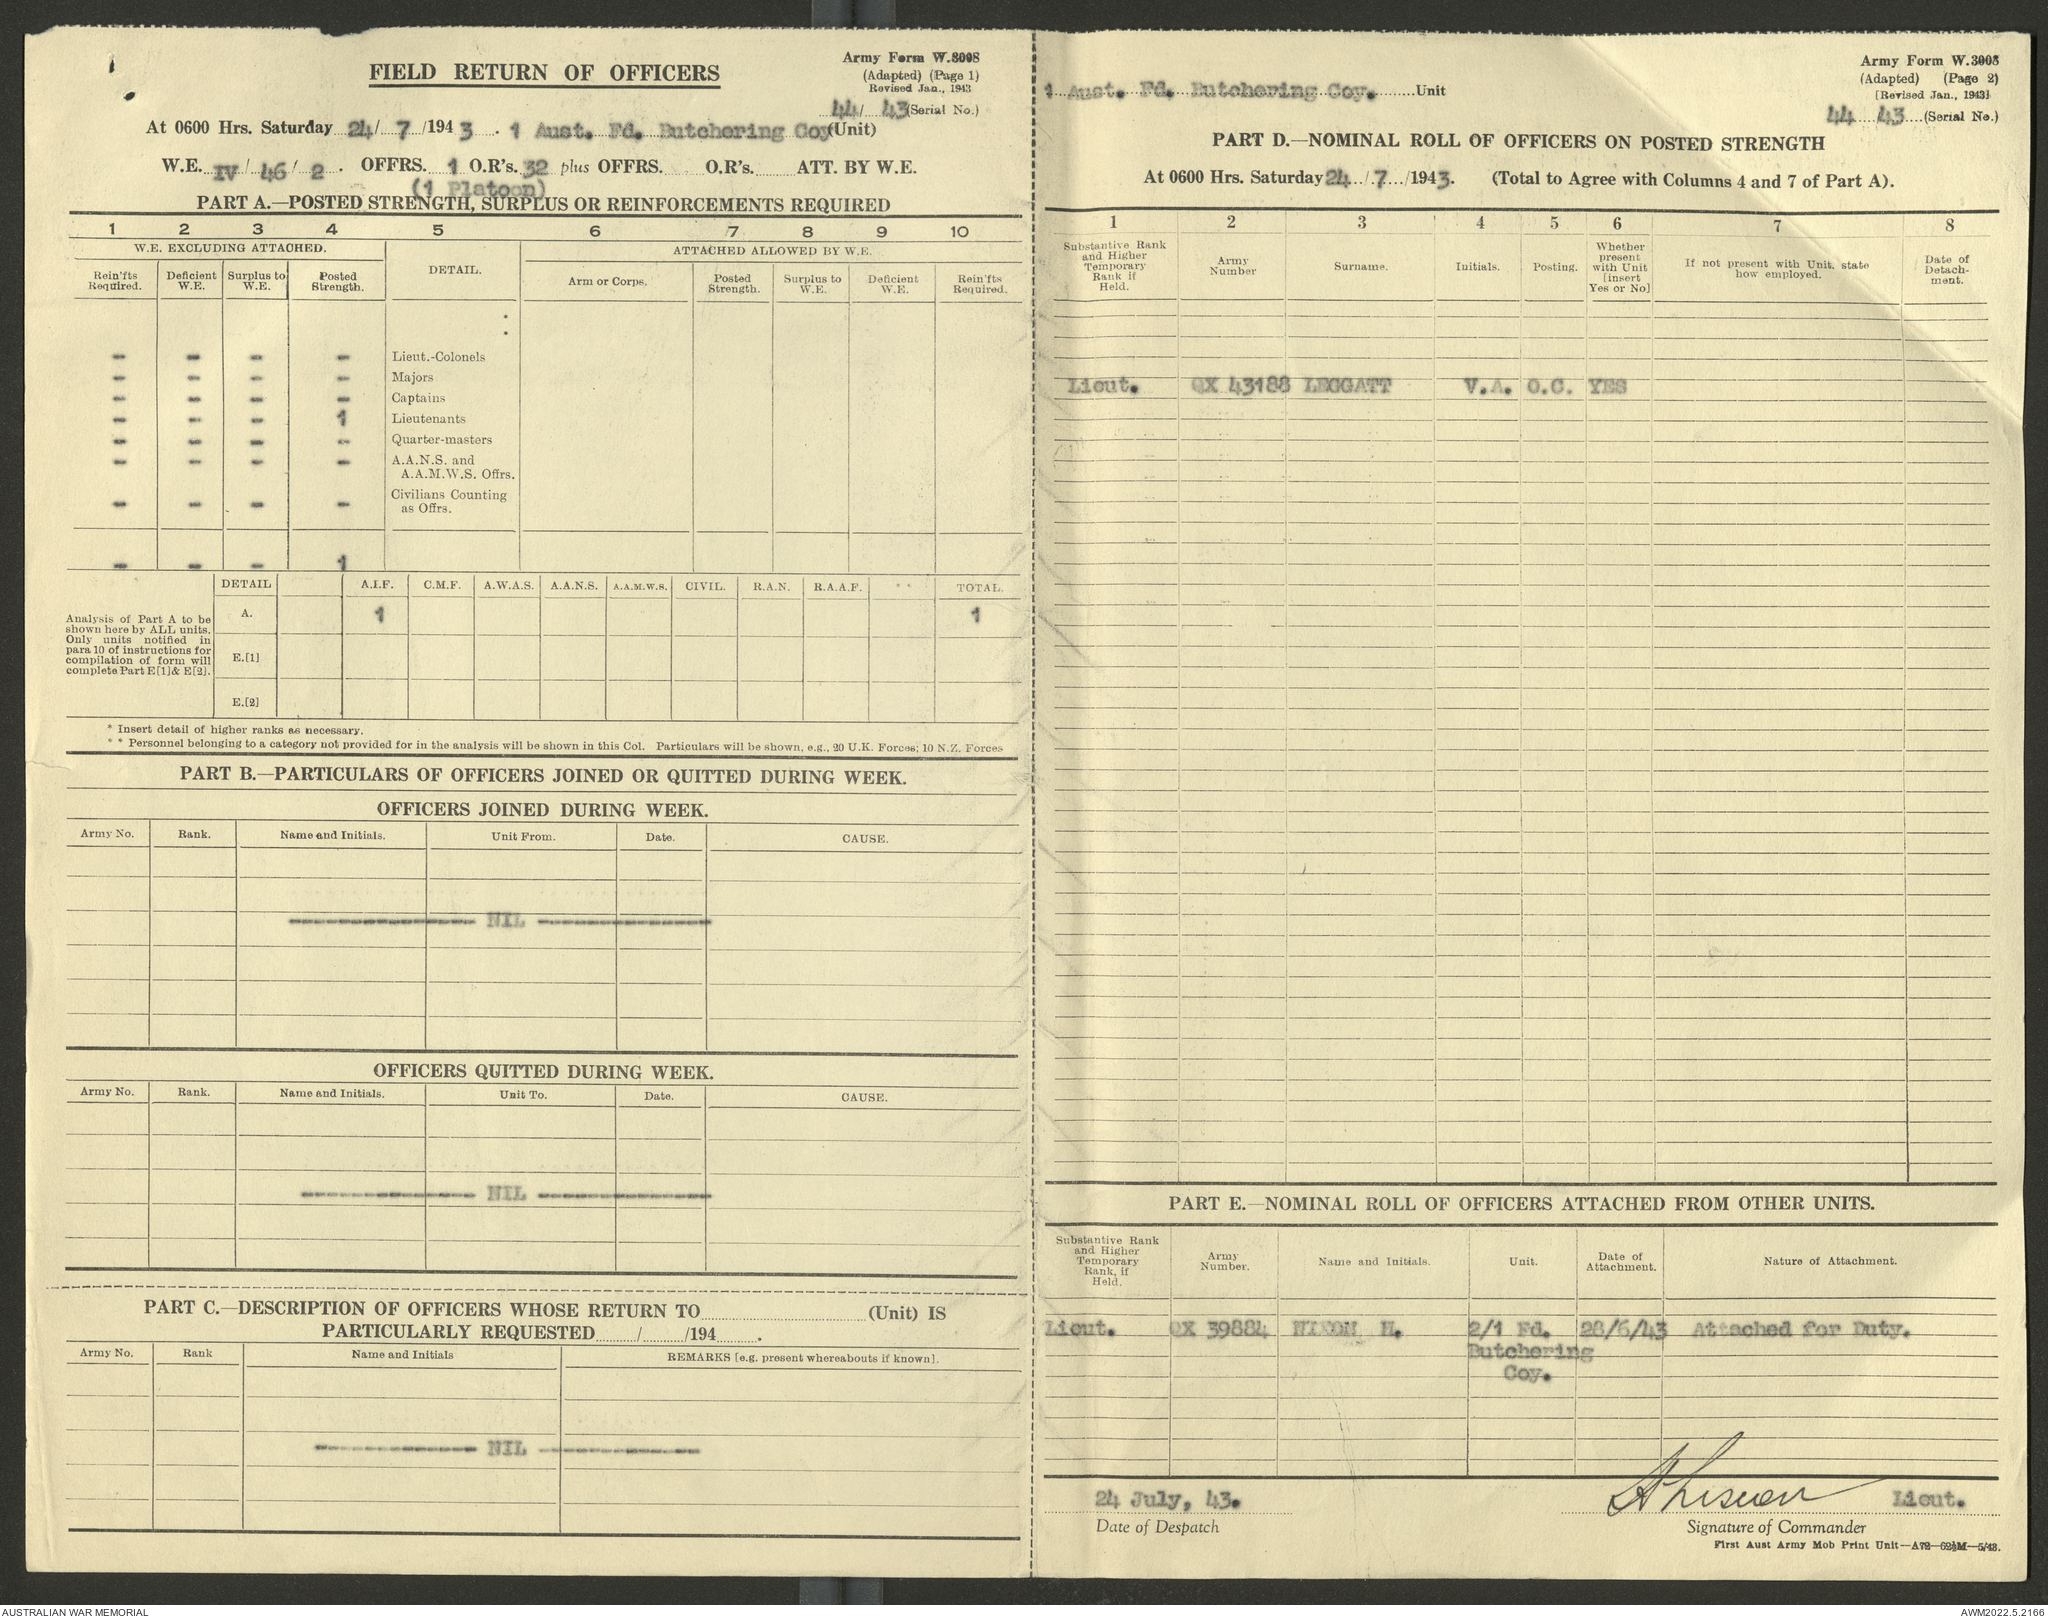 FIELD RETURN OF OFFICERS
Army Form W.3008
(Adapted) (Page 1)
Revised Jan., 1943
44/ 43 (Serial No.)
At 0600 Hrs. Saturday 24/ 7 /1943 . 1 Aust. Fd. Butchering Coy (Unit)
W.E. IV / 46 / 2 . OFFRS. 1 O.R's. 32 plus OFFRS. O.R's. ATT. BY W.E.
(1 Platoon)
PART A.—POSTED STRENGTH, SURPLUS OR REINFORCEMENTS REQUIRED
1 2 3 4 5 6 7 8 9 10
W.E. EXCLUDING ATTACHED. DETAIL. ATTACHED ALLOWED BY W.E.
Rein'fts Required. Deficient W.E. Surplus to W.E. Posted Strength. Arm or Corps. Posted Strength. Surplus to W.E. Deficient W.E. Rein'fts Required.
:
:
- - - - Lieut.-Colonels
- - - - Majors
- - - - Captains
- - - 1 Lieutenants
- - - - Quarter-masters
- - - - A.A.N.S. and
A.A.M.W.S. Offrs.
Civilians Counting
- - - - as Offrs.
- - - 1
DETAIL A.I.F. C.M.F. A.W.A.S. A.A.N.S. A.A.M.W.S. CIVIL. R.A.N. R.A.A.F. * * TOTAL.
A. 1 1
Analysis of Part A to be
shown here by ALL units.
Only units notified in
para 10 of instructions for
compilation of form will
complete Part E[1] & E[2].
E.[1]
E.[2]
* Insert detail of higher ranks as necessary.
* * Personnel belonging to a category not provided for in the analysis will be shown in this Col. Particulars will be shown, e.g., 20 U.K. Forces; 10 N.Z. Forces
PART B.—PARTICULARS OF OFFICERS JOINED OR QUITTED DURING WEEK.
OFFICERS JOINED DURING WEEK.
Army No. Rank. Name and Initials. Unit From. Date. CAUSE.
---------- NIL ----------
OFFICERS QUITTED DURING WEEK.
Army No. Rank. Name and Initials. Unit To. Date. CAUSE.
---------- NIL ----------
PART C.—DESCRIPTION OF OFFICERS WHOSE RETURN TO (Unit) IS
PARTICULARLY REQUESTED / /194 .
Army No. Rank Name and Initials REMARKS [e.g. present whereabouts if known].
---------- NIL ----------
Army Form W.3008
(Adapted) (Page 2)
[Revised Jan., 1943]
1 Aust. Fd. Butchering Coy. Unit
44 43 (Serial No.)
PART D.—NOMINAL ROLL OF OFFICERS ON POSTED STRENGTH
At 0600 Hrs. Saturday 24 / 7 /1943. (Total to Agree with Columns 4 and 7 of Part A).
1 2 3 4 5 6 7 8
Substantive Rank and Higher Temporary Rank if Held. Army Number Surname. Initials. Posting. Whether present with Unit [insert Yes or No] If not present with Unit, state how employed. Date of Detach-ment.
Lieut. QX 43188 LEGGATT V.A. O.C. YES
PART E.—NOMINAL ROLL OF OFFICERS ATTACHED FROM OTHER UNITS.
Substantive Rank and Higher Temporary Rank, if Held. Army Number. Name and Initials. Unit. Date of Attachment. Nature of Attachment.
Lieut. QX 39884 NIXON H. 2/1 Fd. 28/6/43 Attached for Duty.
Butchering
Coy.
24 July, 43. Lieut.
Date of Despatch Signature of Commander
First Aust Army Mob Print Unit—A72—62½M—5/43.
AUSTRALIAN WAR MEMORIAL AWM2022.5.2166